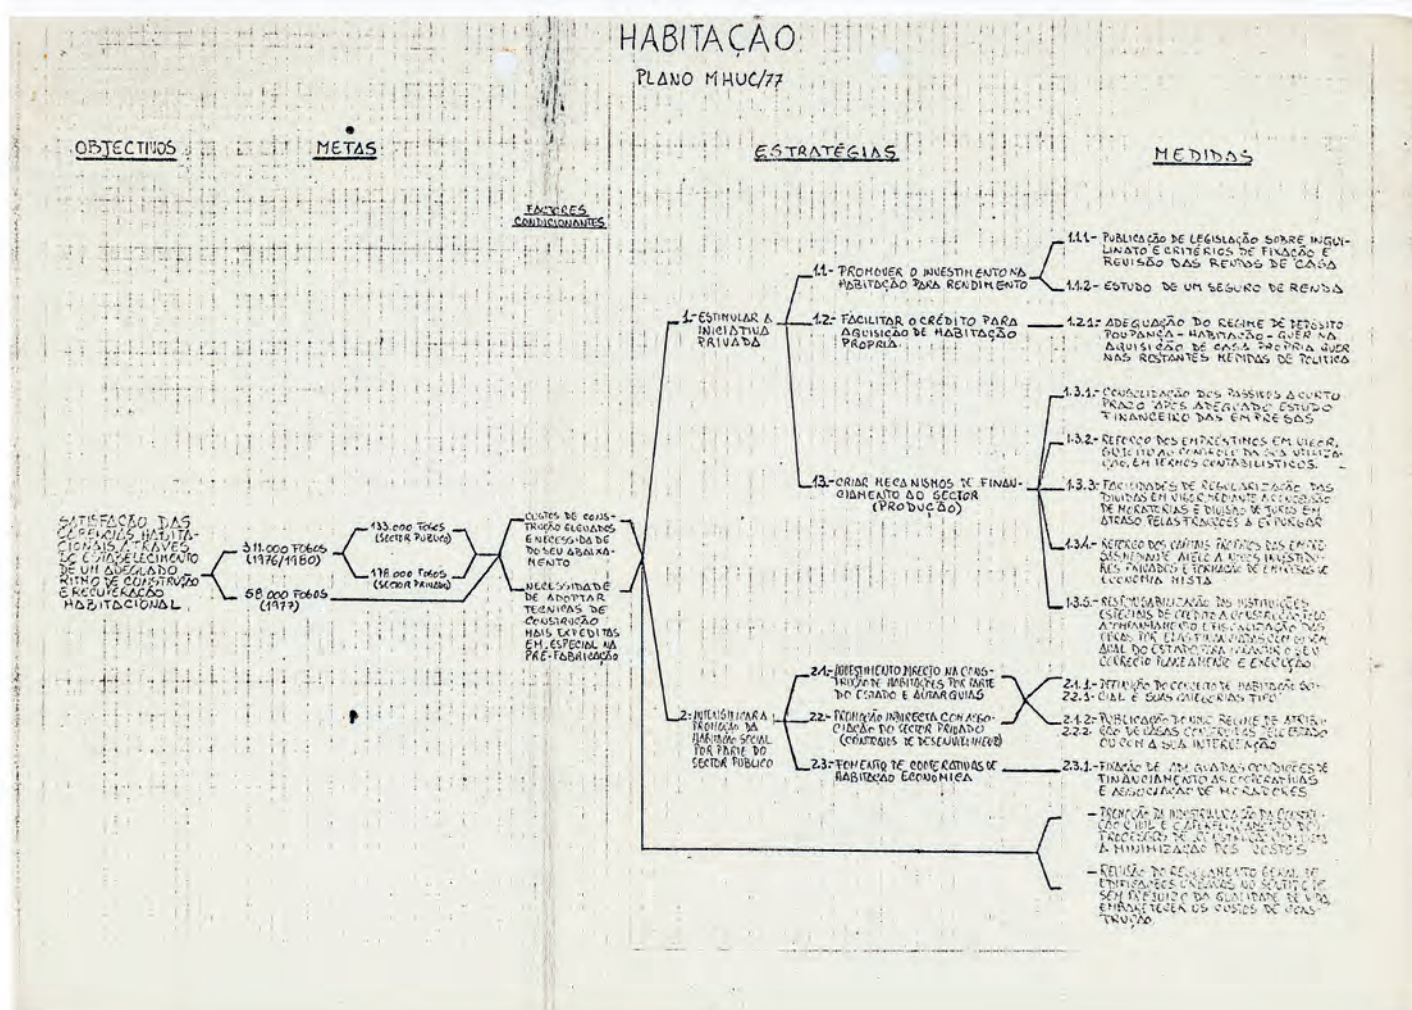 HABITAÇÃO
PLANO MHUC/77
OBJECTIVOS
METAS
FACTORES
CONDICIONANTES
ESTRATÉGIAS
MEDIDAS
SATISFAÇÃO DAS
CARÊNCIAS HABITA-
CIONAIS ATRAVÉS
DO ESTABELECIMENTO
DE UM ADEQUADO
RITMO DE CONSTRUÇÃO
E RECUPERAÇÃO
HABITACIONAL
311.000 FOGOS
(1976/1980)
58.000 FOGOS
(1977)
133.000 FOGOS
(SECTOR PUBLICO)
178.000 FOGOS
(SECTOR PRIVADO)
CUSTOS DE CONS-
TRUÇÃO ELEVADOS
E NECESSIDADE
DO SEU ABAIXA-
MENTO
NECESSIDADE
DE ADOPTAR
TECNICAS DE
CONSTRUCÃO
MAIS EXPEDITAS
EM ESPECIAL NA
PRÉ-FABRICAÇÃO
1.- ESTIMULAR A
INICIATIVA
PRIVADA
2.- INTENSIFICAR A
PROMOÇÃO DA
HABITAÇÃO SOCIAL
POR PARTE DO
SECTOR PUBLICO
1.1- PROMOVER O INVESTIMENTO NA
HABITAÇÃO PARA RENDIMENTO
1.2.- FACILITAR O CRÉDITO PARA
AQUISIÇÃO DE HABITAÇÃO
PROPRIA.
1.3.- CRIAR MECANISMOS DE FINAN-
CIAMENTO AO SECTOR
(PRODUÇÃO)
2.1.- INVESTIMENTO DIRECTO NA CONS-
TRUÇÃO DE HABITAÇÕES POR PARTE
DO ESTADO E AUTARQUIAS
2.2.- PROMOÇÃO INDIRECTA COM ASSO-
CIAÇÃO DO SECTOR PRIVADO
(CONTRATOS DE DESENVOLVIMENTO)
2.3.- FOMENTO DE COOPERATIVAS DE
HABITAÇÃO ECONÓMICA
1.1.1.- PUBLICAÇÃO DE LEGISLAÇÃO SOBRE INQUI-
LINATO E CRITÉRIOS DE FIXAÇÃO E
REVISÃO DAS RENDAS DE CASA
1.1.2- ESTUDO DE UM SEGURO DE RENDA
1.2.1.- ADEQUAÇÃO DO REGIME DE DEPÓSITO
POUPANÇA-HABITAÇÃO-QUER NA
AQUISIÇÃO DE CASA PROPRIA QUER
NAS RESTANTES MEDIDAS DE POLITICA
1.3.1.- CONSOLIDAÇÃO DOS PASSIVOS A CURTO
PRAZO APÓS ADEQUADO ESTUDO
FINANCEIRO DAS EMPRESAS
1.3.2- REFORÇO DOS EMPRÉSTIMOS EM VIGOR,
SUJEITO AO CONTROLE DA SUA UTILIZA-
ÇÃO, EM TERMOS CONTABILISTICOS.
1.3.3- FACILIDADES DE REGULARIZAÇÃO DAS
DIVIDAS EM VIGOR, MEDIANTE A CONCESSÃO
DE MORATÓRIAS E DIVISÃO DE JUROS EM
ATRASO PELAS FRACÇÕES A EXPURGAR
1.3.4.- REFORÇO DOS CAPITAIS PRÓPRIOS DAS EMPRE-
SAS MEDIANTE APELO A NOVOS INVESTIDO-
RES PRIVADOS E FORMAÇÃO DE EMPRESAS DE
ECONOMIA MISTA
1.3.5.- RESPONSABILIZAÇÃO DAS INSTITUIÇÕES
ESPECIAIS DE CRÉDITO A CONSTRUÇÃO PELO
ACOMPANHAMENTO E FISCALIZAÇÃO DAS
OBRAS POR ELAS FINANCIADAS COM
AVAL DO ESTADO PARA GARANTIR O SEU
CORRECTO PLANEAMENTO E EXECUÇÃO
2.1.1.- DEFINIÇÃO DO CONCEITO DE HABITAÇÃO SO-
2.2.1- CIAL E SUAS CATEGORIAS TIPO
2.1.2- PUBLICAÇÃO DO NOVO REGIME DE ATRIBUI-
2.2.2- ÇÃO DE CASAS CONSTRUIDAS PELO ESTADO
OU COM A SUA INTERVENÇÃO
2.3.1.- FIXAÇÃO DE ADEQUADAS CONDIÇÕES DE
FINANCIAMENTO AS COOPERATIVAS
E ASSOCIAÇÃO DE MORADORES
- PROMOÇÃO DA INDUSTRIALIZAÇÃO DA CONSTRU-
ÇÃO CIVIL E O APERFEIÇOAMENTO DOS
PROCESSOS DE CONSTRUÇÃO
A MINIMIZAÇÃO DOS CUSTOS
- REVISÃO DO REGULAMENTO GERAL DE
EDIFICAÇÕES URBANAS NO SENTIDO DE
SEM PREJUIZO DA QUALIDADE DE VIDA,
EMBARETECER OS CUSTOS DE CONS-
TRUÇÃO